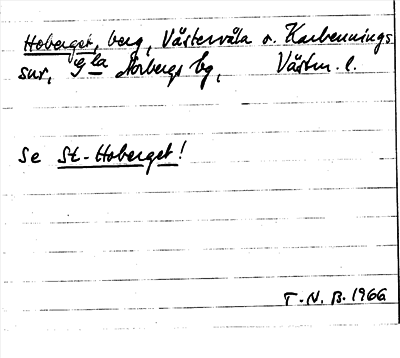 Hoberget, berg, Västervåla o. Karbennings
snr, Gla Norbergs bg, Västm. l.
Se St. Hoberget!
T. N. B. 1966